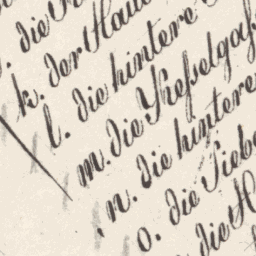 die
k. der
l. die hintere
m. die Kesselgaß
n. die hintere
o. die Siebe
die H